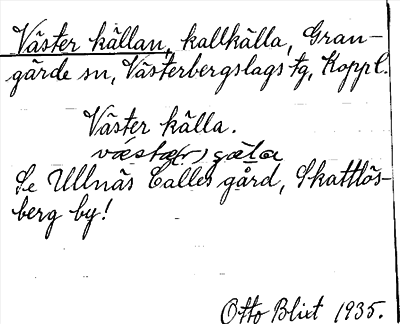 Väster källan, kallkälla, Gran-
gärde sn, Västerbergslags tg, Koppl.
Väster källa.
væstə(r) çæla
Se Ullnäs Calles gård, Skattlös-
berg by!
Otto Blixt 1935.